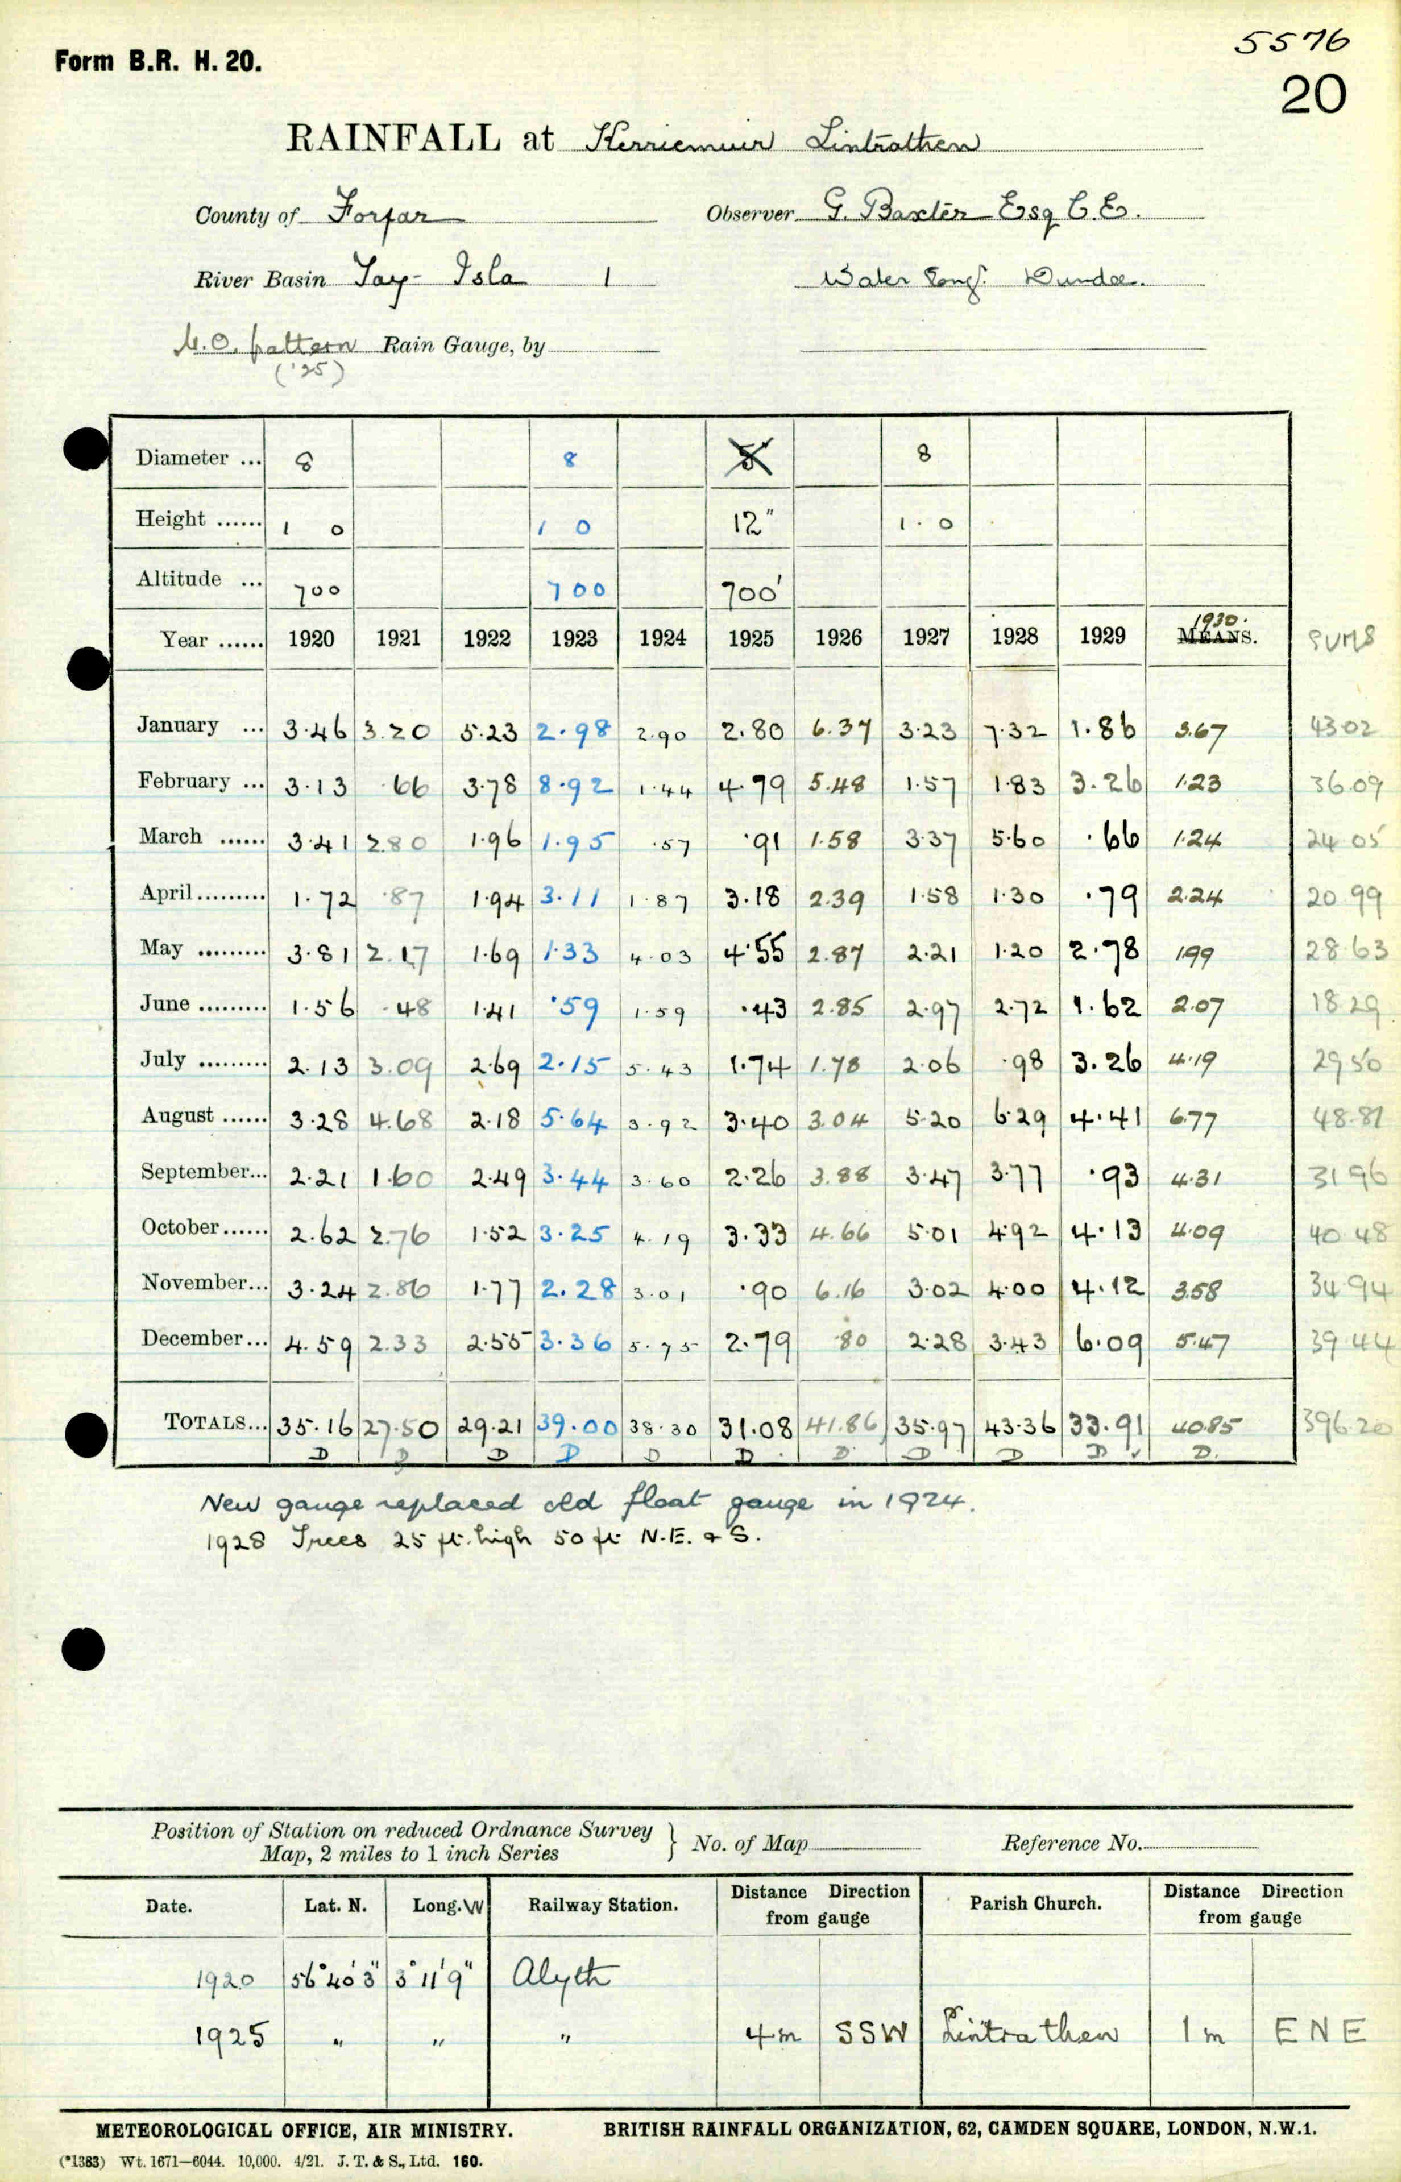 5576
Form B.R. H. 20.
20
RAINFALL at Kerriemuir Lintrathen
County of Forfar Observer G. Baxter Esq C.E.
River Basin Tay- Isla 1 Water Eng'. Dundee.
M.O. pattern Rain Gauge, by
('25)
Diameter ... 8 8 5" 8
Height ...... 1 0 1 0 12" 1·0
Altitude ... 700 700 700'
1930.
Year ...... 1920 1921 1922 1923 1924 1925 1926 1927 1928 1929 MEANS. SUMS
January ... 3·46 3.20 5·23 2·98 2·90 2.80 6.37 3·23 7·32 1.86 3.67 43.02
February ... 3·13 ·66 3·78 8·92 1·44 4·79 5.48 1·57 1·83 3.26 1·23 36.09
March ...... 3·41 2.80 1·96 1·95 ·57 ·91 1.58 3·37 5·60 ·66 1·24 24 05
April......... 1·72 ·87 1·94 3·11 1·87 3·18 2.39 1·58 1·30 ·79 2.24 20 99
May ......... 3·81 2.17 1·69 1·33 4·03 4·55 2.87 2·21 1·20 2·78 1.99 28 63
June ......... 1·56 ·48 1·41 ·59 1·59 ·43 2.85 2·97 2·72 1.62 2.07 18 29
July ......... 2·13 3.09 2·69 2·15 5·43 1·74 1.78 2·06 ·98 3.26 4·19 29 50
August ...... 3·28 4.68 2·18 5·64 3·92 3·40 3.04 5·20 6·29 4·41 6.77 48·81
September... 2·21 1·60 2·49 3·44 3·60 2·26 3.88 3·47 3·77 ·93 4·31 31 96
October...... 2·62 2.76 1·52 3·25 4·19 3·33 4.66 5·01 4·92 4·13 4.09 40 48
November... 3·24 2.86 1·77 2.28 3·01 ·90 6.16 3·02 4·00 4·12 3.58 34 94
December... 4·59 2.33 2·55 3·36 5·75 2·79 ·80 2·28 3·43 6·09 5·47 39 44
TOTALS... 35·16 27.50 29·21 39·00 38·30 31·08 41.86 35·97 43·36 33·91 40.85 396·20
D D D D D D D D D D ✓ D.
New gauge replaced old float gauge in 1924.
1928 Trees 25 ft. high 50 ft N.E. & S.
Position of Station on reduced Ordnance Survey
Map, 2 miles to 1 inch Series } No. of Map Reference No.
Date. Lat. N. Long. W Railway Station. Distance Direction from gauge Parish Church. Distance Direction from gauge
1920 56°40'3" 3°11'9" Alyth
1925 " " " 4m SSW Lintrathen 1m ENE
METEOROLOGICAL OFFICE, AIR MINISTRY. BRITISH RAINFALL ORGANIZATION, 62, CAMDEN SQUARE, LONDON, N.W.1.
(*1383) Wt. 1671—6044. 10,000. 4/21. J. T. & S., Ltd. 160.